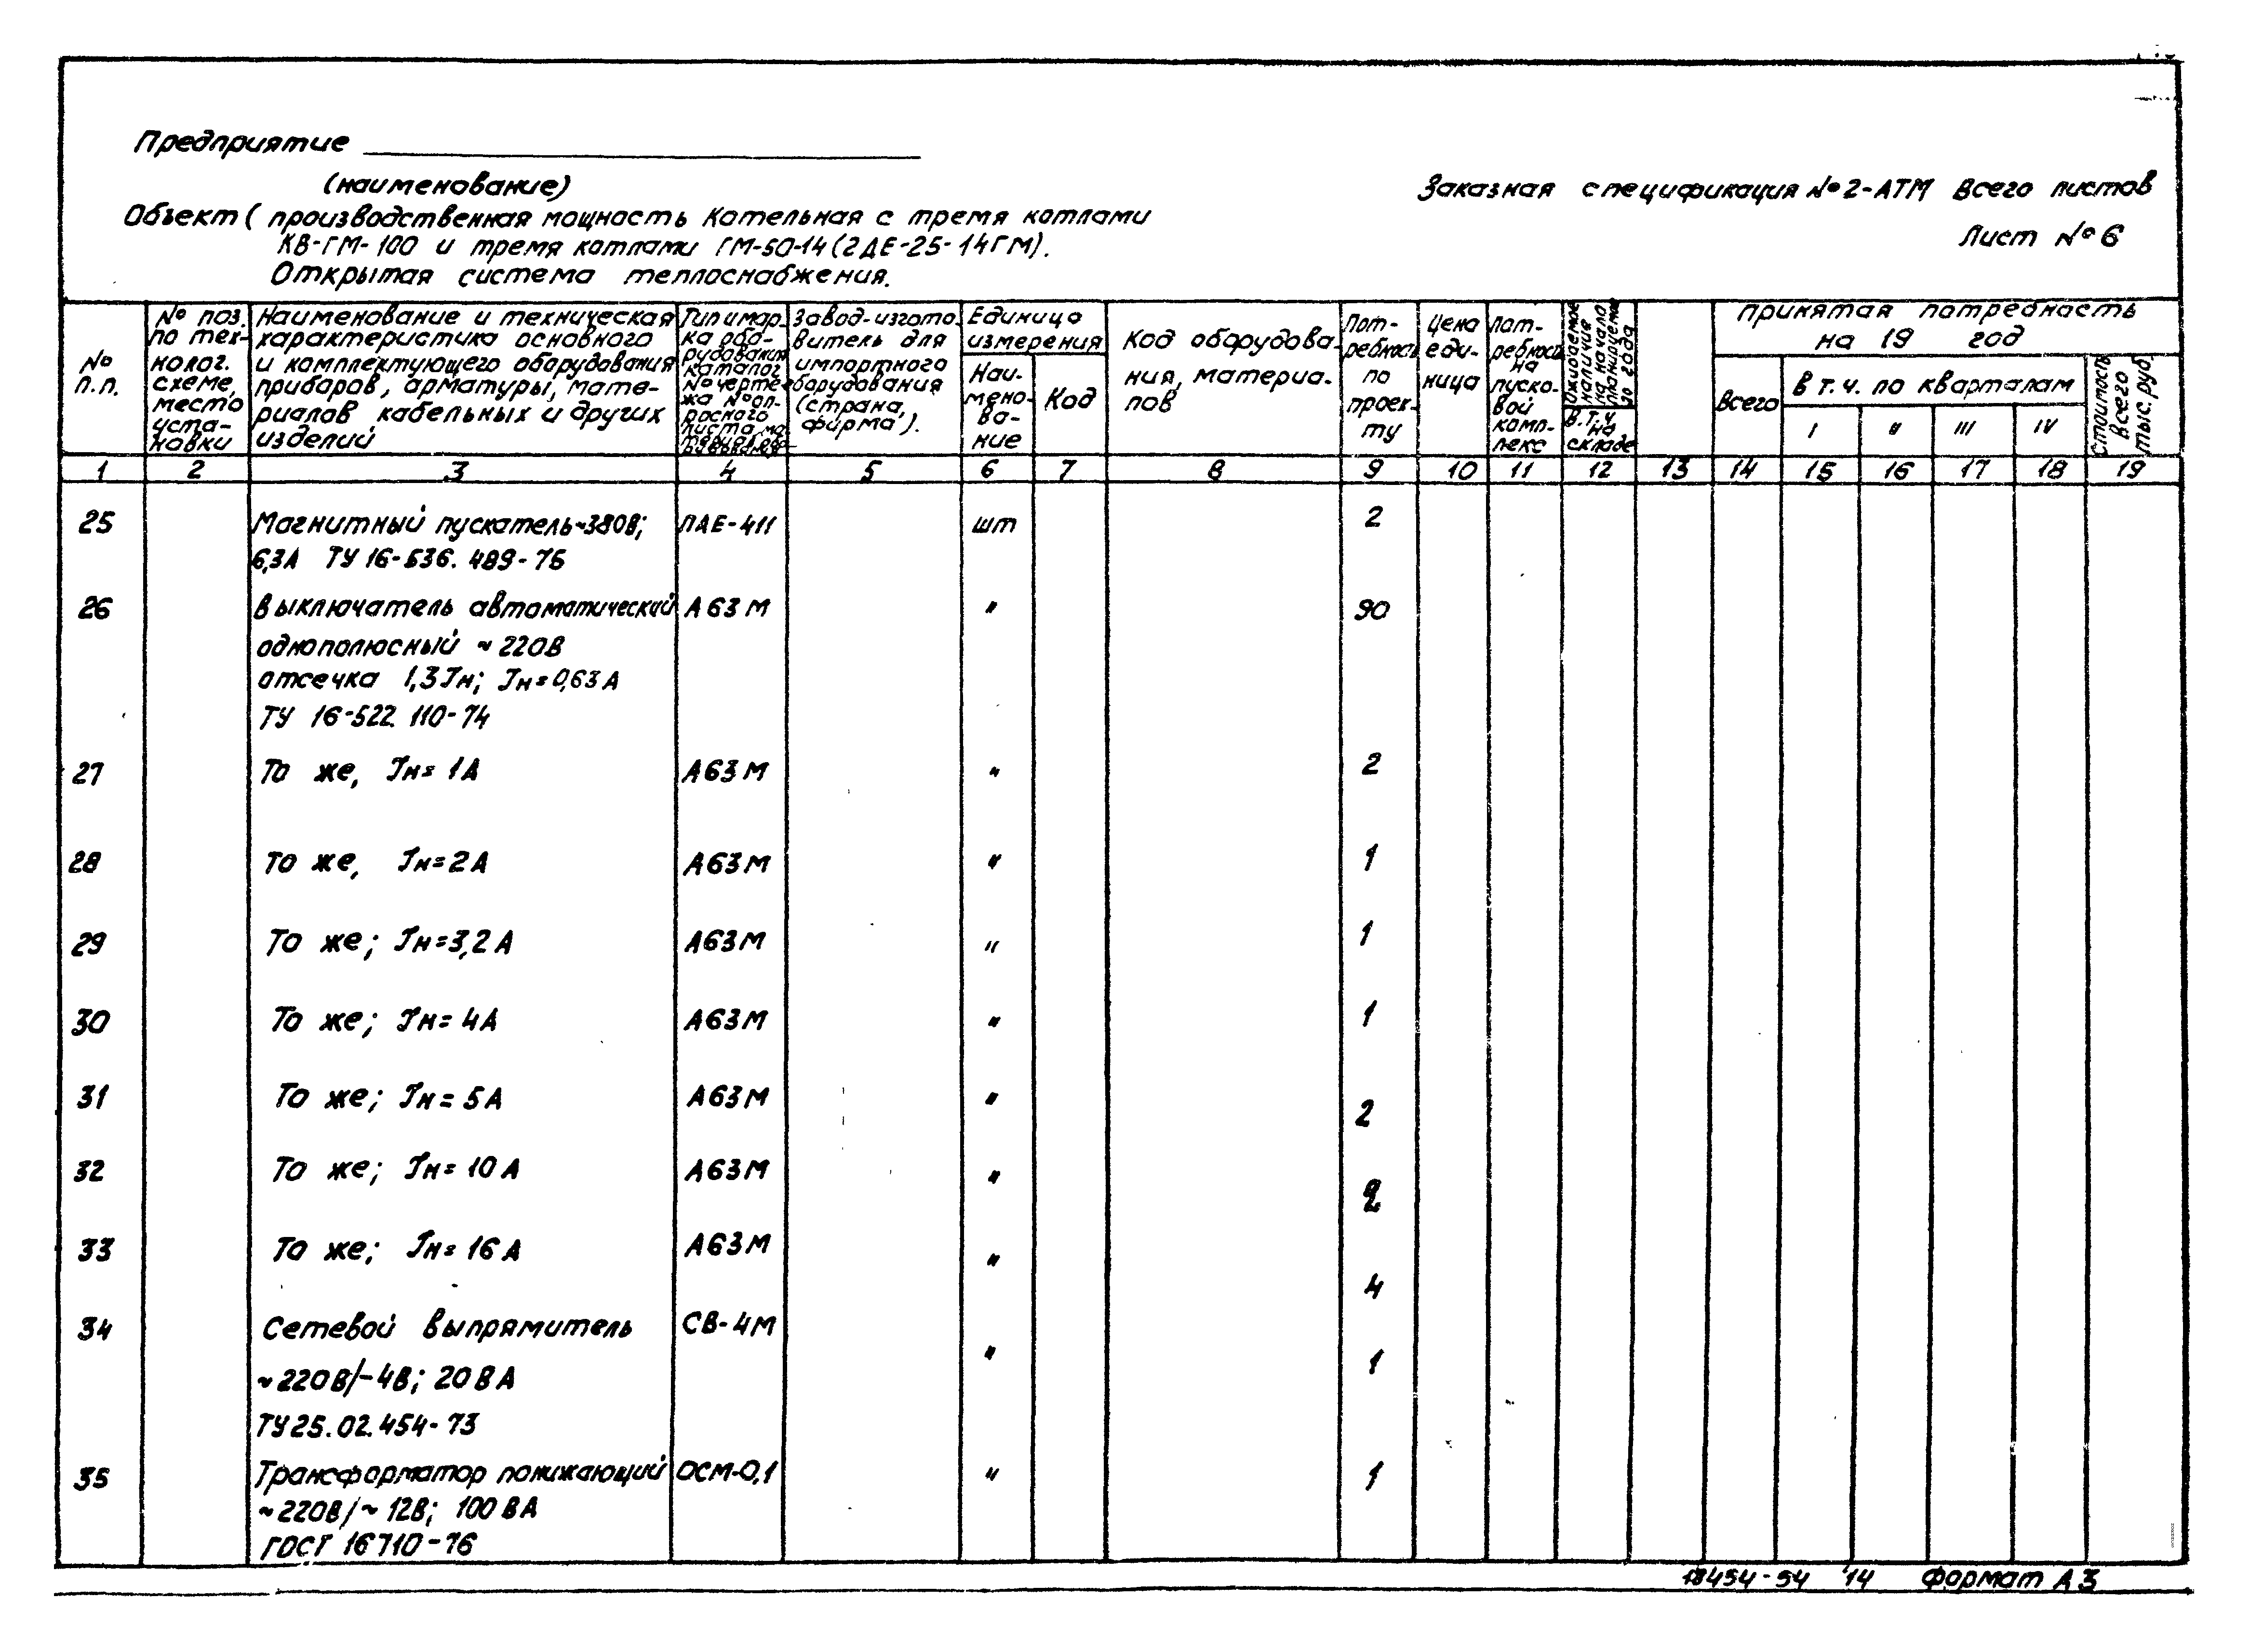 Предприятие
(наименование)
Заказная спецификация №2-АТМ Всего листов
Лист №6
Объект ( производственная мощность Котельная с тремя котлами
КВ-ГМ-100 и тремя котлами ГМ-50-14 (2ДЕ-25-14ГМ).
Открытая система теплоснабжения.
№
п.п.
№ поз.
по тех-
нолог.
схеме,
место
уста-
новки
Наименование и техническая
характеристика основного
и комплектующего оборудования
приборов, арматуры, мате-
риалов кабельных и других
изделий
Тип и мар-
ка обо-
рудования
каталог
№ черте-
жа № оп-
росного
листа, ма-
Завод-изгото-
витель для
импортного
оборудования
(страна,
фирма).
Единица
измерения
Наи-
мено-
ва-
ние
Код
Код оборудова-
ния, материа-
лов
Пот-
ребность
по
проек-
ту
Цена
еди-
ница
Пот-
ребность
на
пуско-
вой
комп-
лекс
Ожидаемое
наличие
на начало
планируемо-
го года
В.т.ч
на
складе
принятая потребность
на 19 год
Всего
в т.ч. по кварталам
I II III IV
Стоимость
всего
тыс.руб.
1 2 3 4 5 6 7 8 9 10 11 12 13 14 15 16 17 18 19
25 Магнитный пускатель ~380В; ПАЕ-411 шт 2
6,3А ТУ 16-536.489-75
26 Выключатель автоматический А63М " 90
однополюсный ~220В
отсечка 1,3Iн; Iн=0,63А
ТУ 16-522.110-74
27 То же, Iн=1А А63М " 2
28 То же, Iн=2А А63М " 1
29 То же; Iн=3,2А А63М " 1
30 То же; Iн=4А А63М " 1
31 То же; Iн=5А А63М " 2
32 То же; Iн=10А А63М " 2
33 То же; Iн=16А А63М " 4
34 Сетевой выпрямитель СВ-4М " 1
~220В/-4В; 20ВА
ТУ25.02.454-73
35 Трансформатор понижающий ОСМ-0,1 " 1
~220В/~12В; 100ВА
ГОСТ 16710-76
18454-54 14 Формат А3